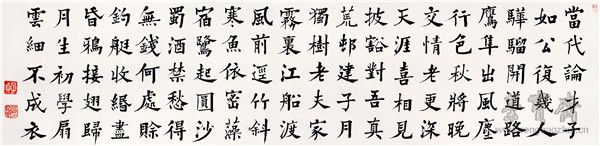 當代論才子
如公復幾人
驊騮開道路
鷹隼出風塵
行色秋將晚
交情老更深
天涯喜相見
披豁對吾真
荒邨建子月
獨樹老夫家
霧裏江船渡
風前逕竹斜
寒魚依密藻
宿鷺起圓沙
蜀酒禁愁得
無錢何處賒
釣艇收緡盡
昏鴉接翅歸
月生初學扇
雲細不成衣